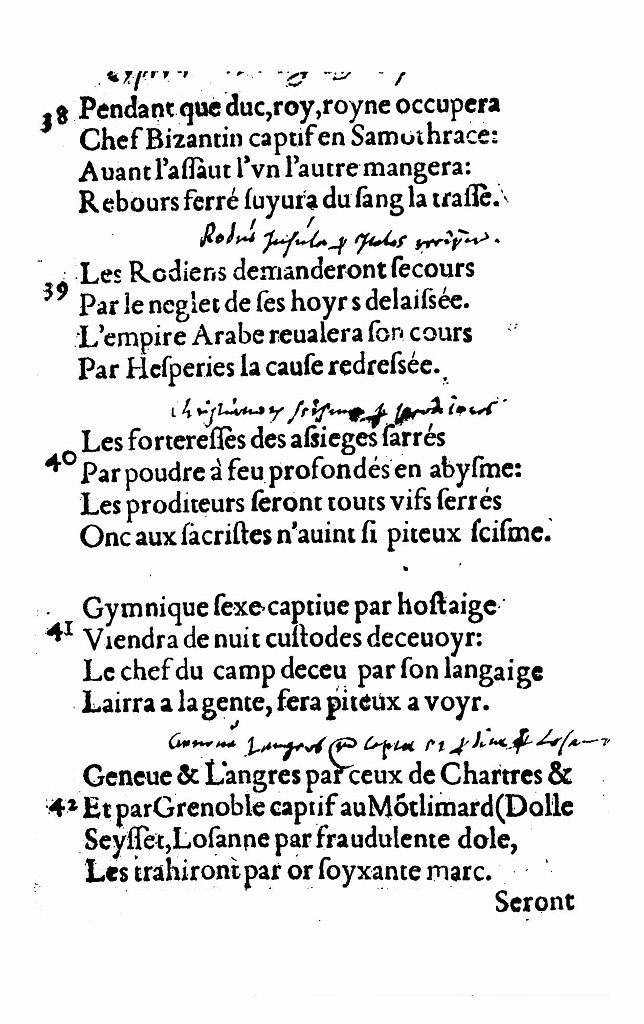 38 Pendant que duc,roy,royne occupera
Chef Bizantin captif en Samothrace:
Auant l'aſſaut l'vn l'autre mangera:
Rebours ferré ſuyura du ſang la traſſe.
Les Rodiens demanderont ſecours
39 Par le neglet de ſes hoyrs delaiſsée.
L'empire Arabe reualera ſon cours
Par Heſperies la cauſe redreſsée.
Les fortereſſes des aſsieges ſarrés
40 Par poudre à feu profondés en abyſme:
Les proditeurs ſeront touts vifs ſerrés
Onc aux ſacriſtes n'auint ſi piteux ſciſme.
Gymnique ſexe captiue par hoſtaige
41 Viendra de nuit cuſtodes deceuoyr:
Le chef du camp deceu par ſon langaige
Lairra a la gente, fera piteux a voyr.
Geneue & Langres par ceux de Chartres &
42 Et par Grenoble captif au Mõtlimard (Dolle
Seyſſet, Loſanne par fraudulente dole,
Les trahiront par or ſoyxante marc.
Seront